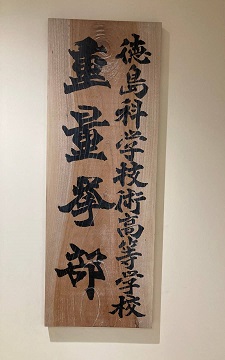 徳島科学技術高等学校
重量挙部